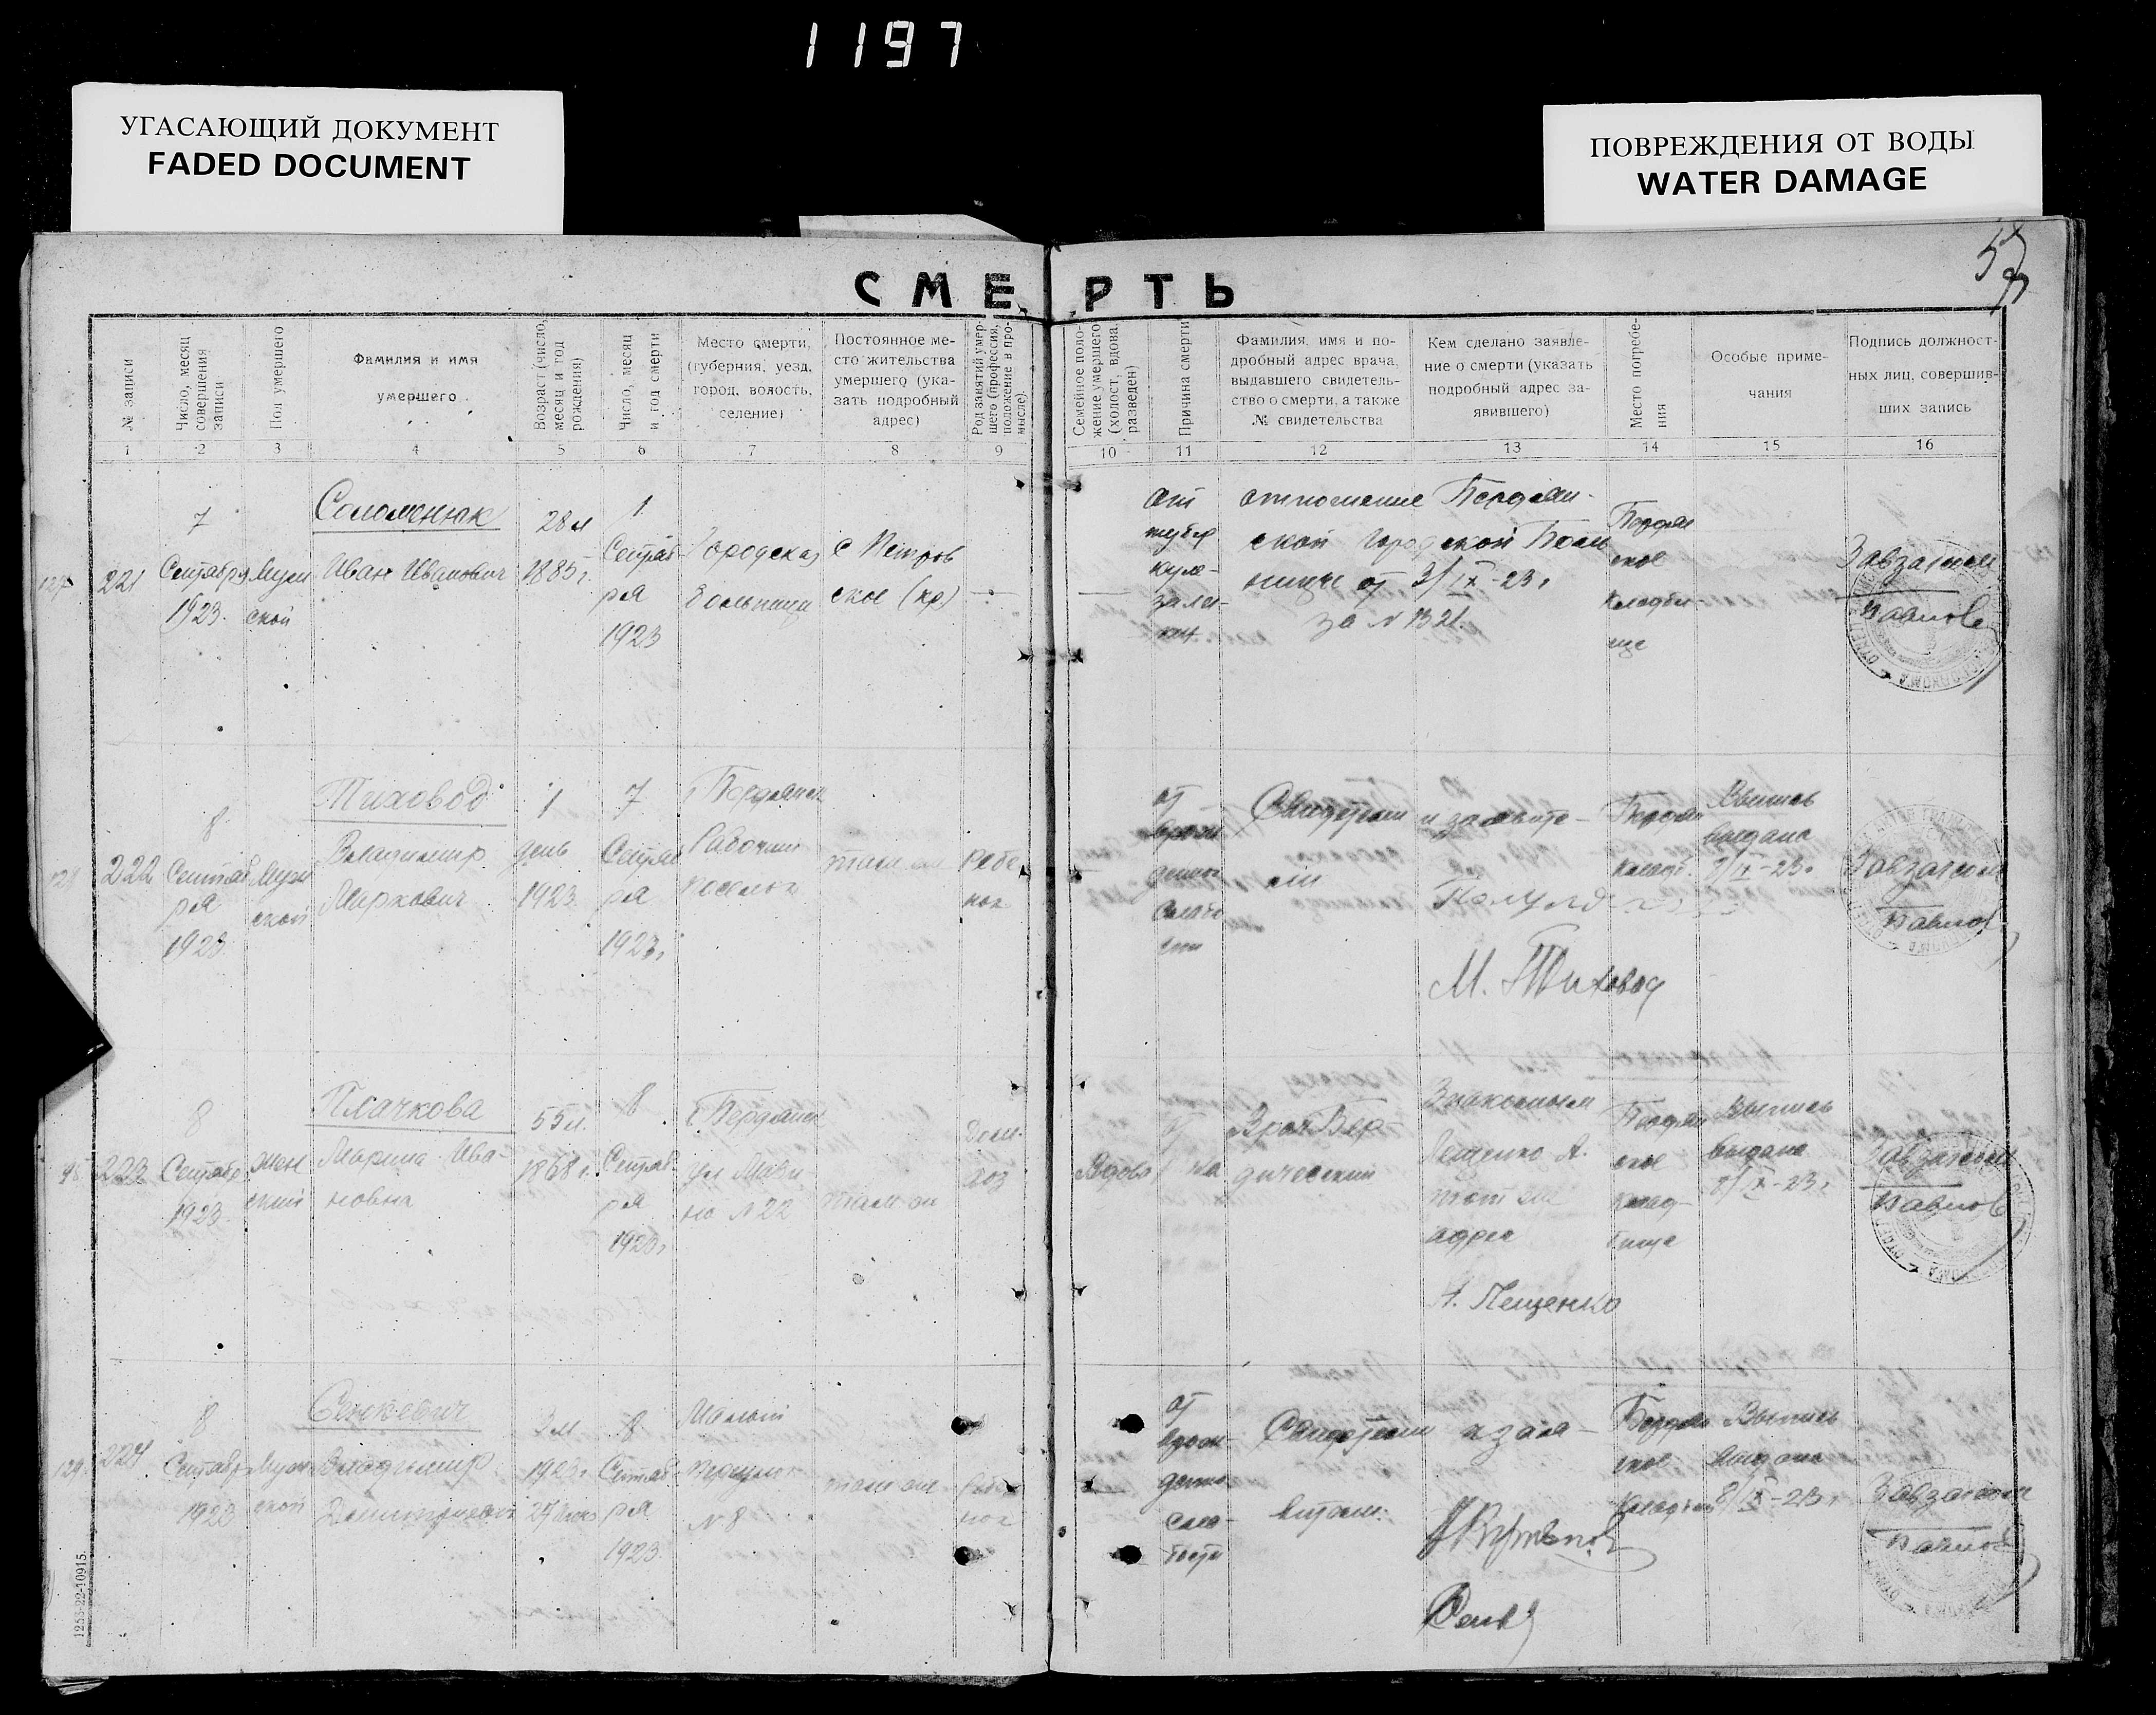 1197
УГАСАЮЩИЙ ДОКУМЕНТ
FADED DOCUMENT
ПОВРЕЖДЕНИЯ ОТ ВОДЫ
WATER DAMAGE
57
СМЕРТЬ
№ записи
Число, месяц
совершения
записи
Пол умершего
Фамилия и имя
умершего
Возраст (число,
месяц и год
рождения)
Число, месяц
и год смерти
Место смерти,
(губерния, уезд,
город, волость,
селение)
Постоянное ме-
сто жительства
умершего (ука-
зать подробный
адрес)
Род занятий умер-
шего (профессия,
положение в про-
мысле).
Семейное поло-
жение умершего
(холост, вдова,
разведен)
Причина смерти
Фамилия, имя и по-
дробный адрес врача,
выдавшего свидетель-
ство о смерти, а также
№ свидетельства
Кем сделано заявле-
ние о смерти (указать
подробный адрес за-
явившего)
Место погребе-
ния
Особые приме-
чания
Подпись должност-
ных лиц, совершив-
ших запись
1 2 3 4 5 6 7 8 9 10 11 12 13 14 15 16
127
221
7
Сентября
1923.
Муж
ской
Соломенюк
Иван Иванович
28 л
1885 г.
1
Сентяб
ря
1923
Городская
больница
с Петров
ское (кр)
—
—
от
тубер
куле-
за лег-
ких
отношение Бердян-
ской Городской Боль
ницы от 3/IX-23 г
за N 1321.
Бердян
ское
кладби-
ще
Завзагсом
Павлов
222
8
Сентяб
ря
1923
Муж
ской
Тиховод
Владимир
Маркович
1
день
1923
7
Сентяб
ря
1923 г
г Бердянск
Рабочий
поселок
там же
Ребе
нок
от
врож
денной
слабо
сти
Свидетели и заявите-
ли
М. Тиховод
Бердян
кладб.
Выпись
выдана
8/IX-23 г
Завзагсом
Павлов
223
8
Сентябр
1923
жен
ский
Плачкова
Марина Ива-
новна
55 л.
1868 г.
8
Сентяб
ря
1923 г
г Бердянск
N 22
там же
Дом.
хоз
Вдова
от
Врач Бер-
дический
Знакомым
Лещенко А.
тот же
адрес
А. Лещенко
Бердян
ское
клад-
бище
Выпись
выдана
8/IX-23 г
Завзагсом
Павлов
129
224
8
Сентябр
1923
Муж
ской
Сенкевич
Владимир
Дмитриевич
3 м
1923 г
8
Сентяб
ря
1923
Малый
переулок
N 8
там же
Ребе
нок
от
врож-
денно
сла-
бости
Свидетели и зая-
вители:
Бердян
ское
Кладбищ
Выпись
выдана
8/IX-23 г
Завзагсом
Павлов
1253-22-10915.